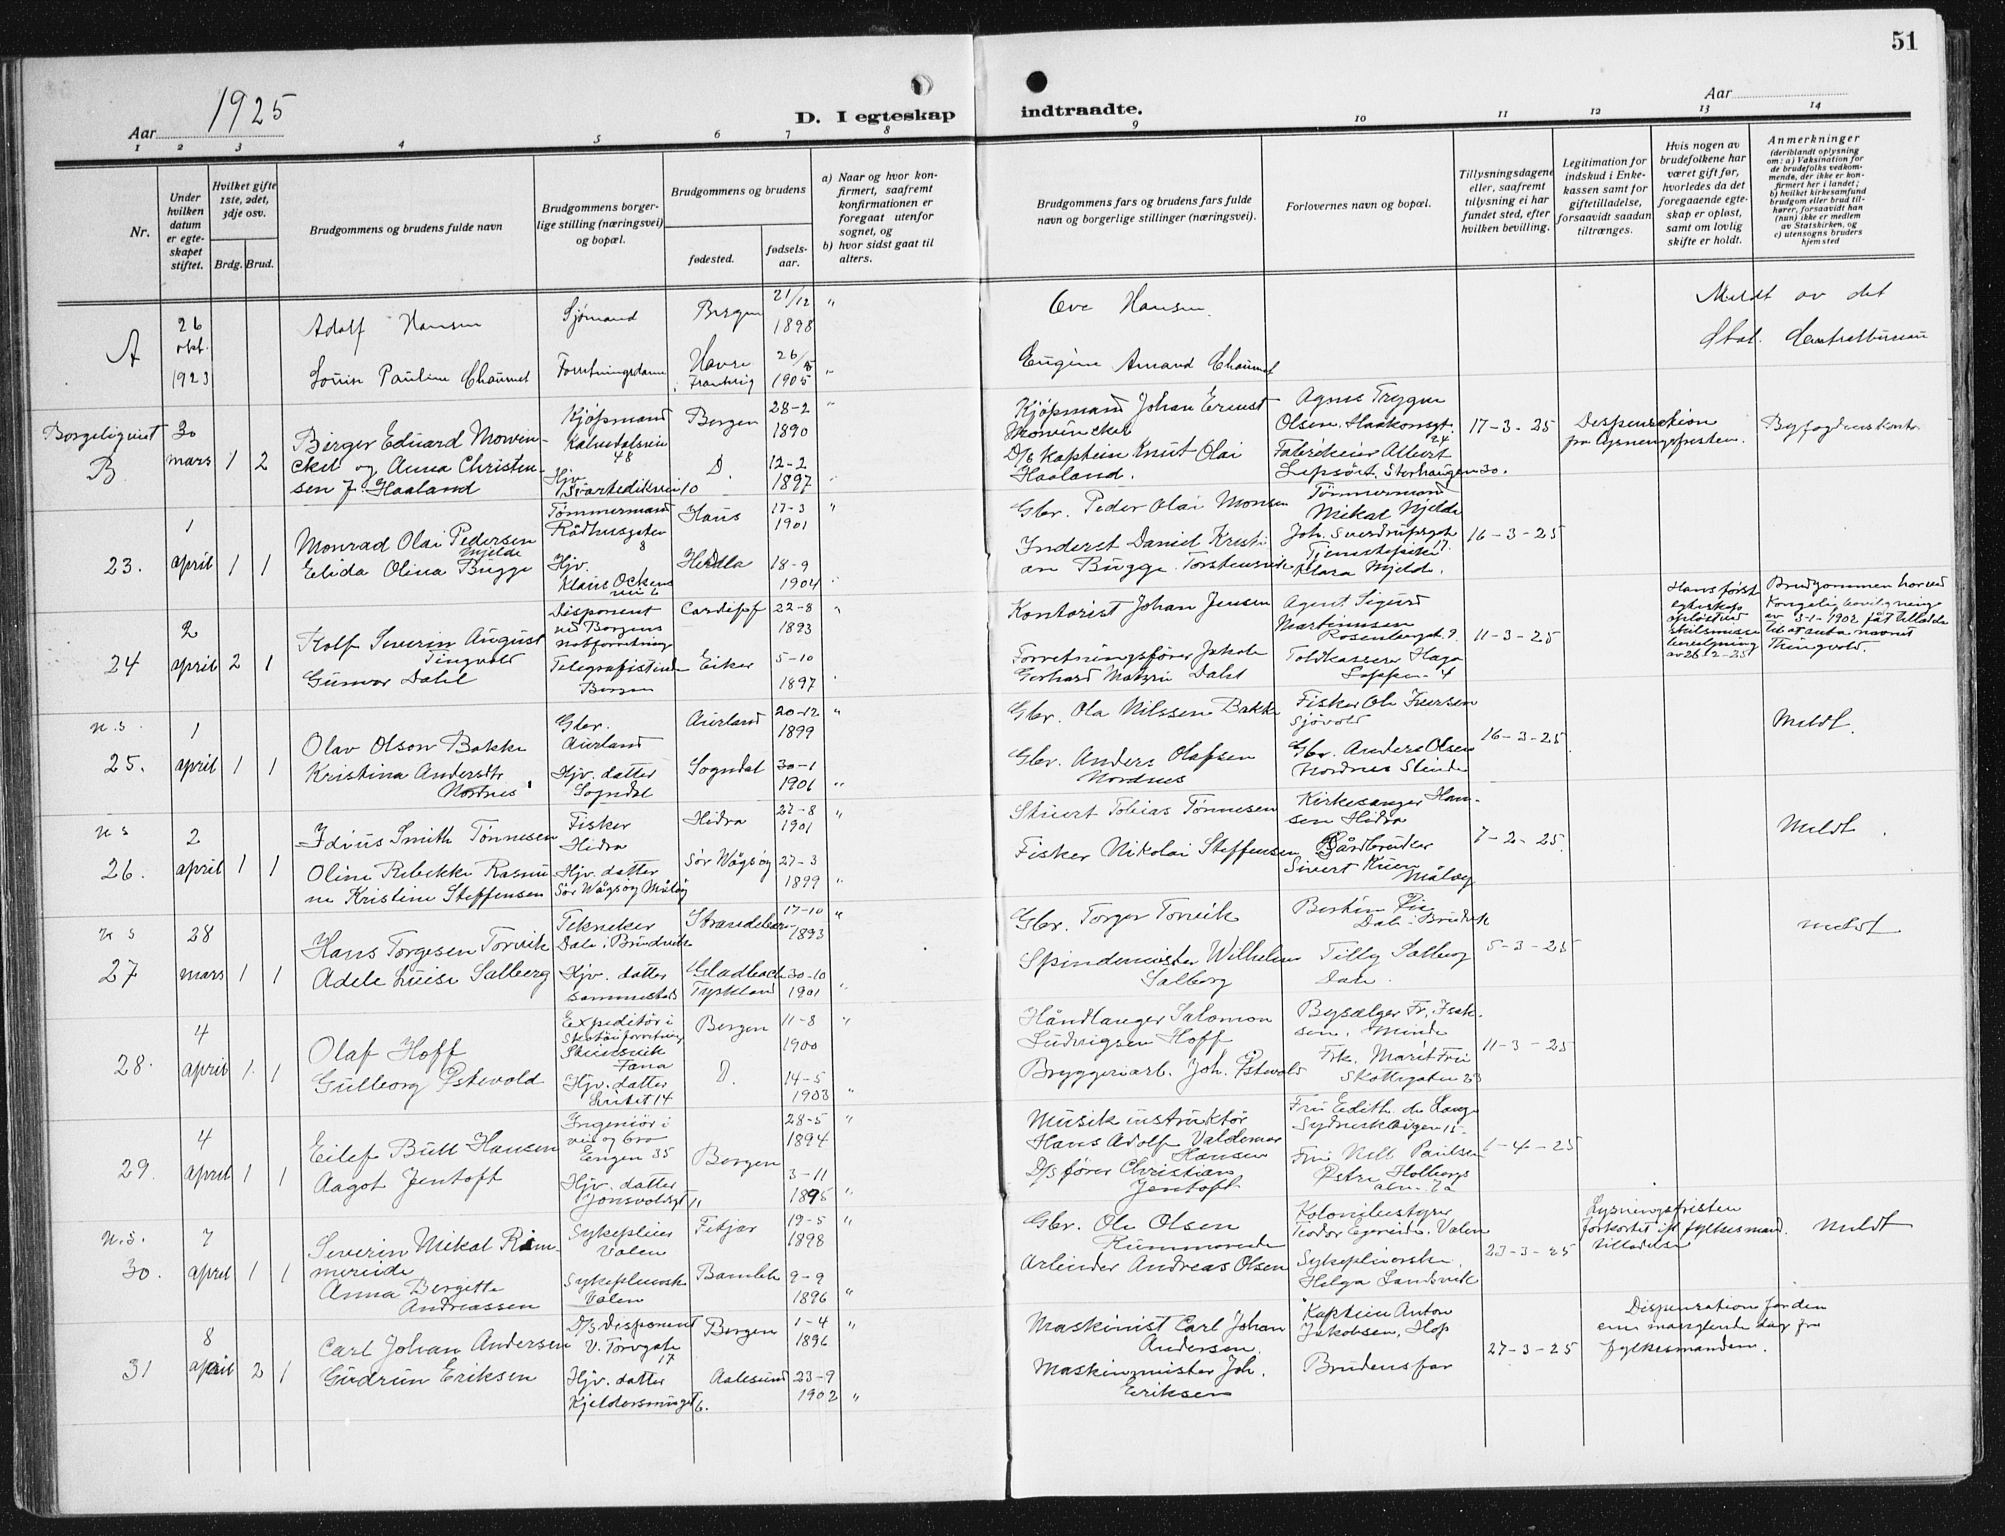 51
Aar 1925
D. I egteskap indtraadte.
Aar
1 2 3 4 5 6 7 8 9 10 11 12 13 14
Nr.
Under hvilken datum er egteskapet stiftet.
Hvilket gifte 1ste, 2det, 3dje osv.
Brdg. Brud.
Brudgommens og brudens fulde navn
Brudgommens borgerlige stilling (næringsvei) og bopæl.
Brudgommens og brudens
fødested.
fødselsaar.
a) Naar og hvor konfirmert, saafremt konfirmationen er foregaat utenfor sognet, og
b) hvor sidst gaat til alters.
Brudgommens fars og brudens fars fulde navn og borgerlige stillinger (næringsvei).
Forlovernes navn og bopæl.
Tillysningsdagene eller, saafremt tillysning ei har fundet sted, efter hvilken bevilling.
Legitimation for indskud i Enkekassen samt for giftetilladelse, forsaavidt saadan tiltrænges.
Hvis nogen av brudefolkene har været gift før, hvorledes da det foregaaende egteskap er opløst, samt om lovlig skifte er holdt.
Anmerkninger
(deriblandt oplysning om: a) Vaksination for de brudefolks vedkommende, der ikke er konfirmert her i landet; b) hvilket kirkesamfund brudgom eller brud tilhører, forsaavidt han (hun) ikke er medlem av Statskirken, og c) utensogns bruders hjemsted
A 26 okt. 1923
Adolf Hansen Sjømand Bergen 21/12 1898 "
Ove Hansen.
Meldt av det Stat. Centralbureau
Louise Pauline Chaumet Forretningsdame Havre Frankrig 26/5 1905 "
Eugène Amand Chaumet
Borgerligviet B 30 mars 1 2
Birger Eduard Mowinckel og Anna Christensen f. Haaland
Kjøpmand Kalvedalsvei 48 Bergen 28-2 1890 "
Hjv. Svartediksvei 10 D 12-2 1897 "
Kjøpmand Johan Ernst Mowinckel
D/s Kaptein Knut Olai Haaland.
Agnes Trygve Olsen, Haakonsgt. 24
Fabrikeier Albert Lepsøe, Storhaugen 30.
17-3-25
Dispensation fra lysningsfristen.
Byfogdenskontr.
23. 1 april 1 1
Monrad Olai Pedersen Mjelde
Tømmermand Rådhusgaten 8 Haus 17-3 1901 "
Elida Olina Bugge
Hjv. Klaus Ockens Herdla 18-9 1904 "
Gbr. Peder Olai Monsen
Inderst Daniel Kristian Bugge. Torstensvik
Tømmermand Mikal Mjelde Joh. Sverdrupsgt 17.
Tjenestepike Klara Mjelde.
16-3-25
24 2 april 2 1
Rolf Severin August Tingvold
Disponent ved Bergens notforretning Cardiff 22-8 1893 "
Gunvor Dahl
Telegrafistinde Bergen Eiker 5-10 1897 "
Kontorist Johan Jensen
Forretningsfører Jakob Gerhard Dahl
Agent Sigurd Martinusen Rosenbergsgt. 9.
Toldkasserer Haga
11-3-25
Hans første egteskap opløst ved skilsmisse bevilgning av 26-2-25
Brudgommen har ved Kongelig bevilgning av 3-1-1902 fåt tilladelse til at anta navnet Thingvold.
u.s. 25. 1 april 1 1
Olav Olson Bakke Gbr. Aurland Aurland 20-12 1899 "
Kristina Andersdtr Nordnes Hjv. datter Sogndal Sogndal 30-1 1901 "
Gbr. Ola Nilssen Bakke
Gbr. Anders Olafsen Nordnes
Fisker Ole Iversen Sjøvold
Gbr. Anders Olsen Nordnes Slinde
16-3-25
Meldt.
u s 26. 2 april 1 1
Idius Smith Tønnesen Fisker Hidra Hidra 27-8 1901 "
Oline Rebekka Rasmine Kristine Steffensen Hjv. datter Sør Vågsøy Måløy Sør Vågsøy 27-3 1899 "
Sivert Tobias Tønnesen
Fisker Nikolai Steffensen
Kirkesanger Hansen Hidra
Gårdbruker Sivert Måløy
7-2-25.
Meldt.
u s 27 28 mars 1 1
Hans Torgesen Torvik Tekniker Dale i Bruvik Strandebarm 17-10 1893 "
Adele Luise Salberg Hjv. datter sammesteds Gladbach Tyskland 30-10 1901 "
Gbr. Torger Torvik
Spindemester Wilhelm Salberg
Dale i Bruvik
Tilly Salberg Dale.
5-3-25
Meldt
28. 4 april 1. 1
Olaf Hoff Expeditør i Skotøiforretning Fana Bergen 11-8 1900 "
Gulborg Østevold Hjv. datter 14 D. 14-5 1903 "
Håndlanger Salomon Ludvigsen Hoff
Bryggeriarb. Joh. Østevold
Bysælger Fr. Isaksen. Minde
Frk. Marit Frii Skottegaten 23
11-3-25
29. 4 april 1 1
Eilef Bull Hansen Ingeniør i vei og bro Engen 35 28-5 1894 "
Aagot Jentoft Hjv. datter Jonsvoldsgt 11 Bergen 3-11 1895 "
Musikinstruktør Hans Adolf Valdemar Hansen
D/s fører Christian Jentoft
Fru Edith de Lange Sydneskleiven 15.
Fru Nelli Paulsen Østre Holbergs alm. 7a
6-4-25
u.s. 30. 7 april 1 1
Severin Mikal Rommereide Sykepleier Valen Fitjar 19-5 1898 "
Anna Bergette Andreassen Sykepleierske Valen Bamble 9-9 1896 "
Gbr. Ole Olsen Rummereide
Arbeider Andreas Olsen
Kolonibestyrer Teodor Valen
Sykepleierske. Helga Sandvik
23-3-25
Lysningsfristen forkortet ifl. fylkesmand. tilladelse
Meldt
31 8 april 2 1
Carl Johan Andersen D/s Disponent V. Torvgate 17 Bergen 1-4 1896 "
Gudrun Eriksen Hjv. datter Kjeldersmuget 6. Aalesund 23-9 1902 "
Maskinist Carl Johan Andersen.
Maskinmester Joh. Eriksen
Kaptein Anton Jakobsen, Hop
Brudens far
27-3-25
Dispensation for den ene manglende dag fra fylkesmanden.